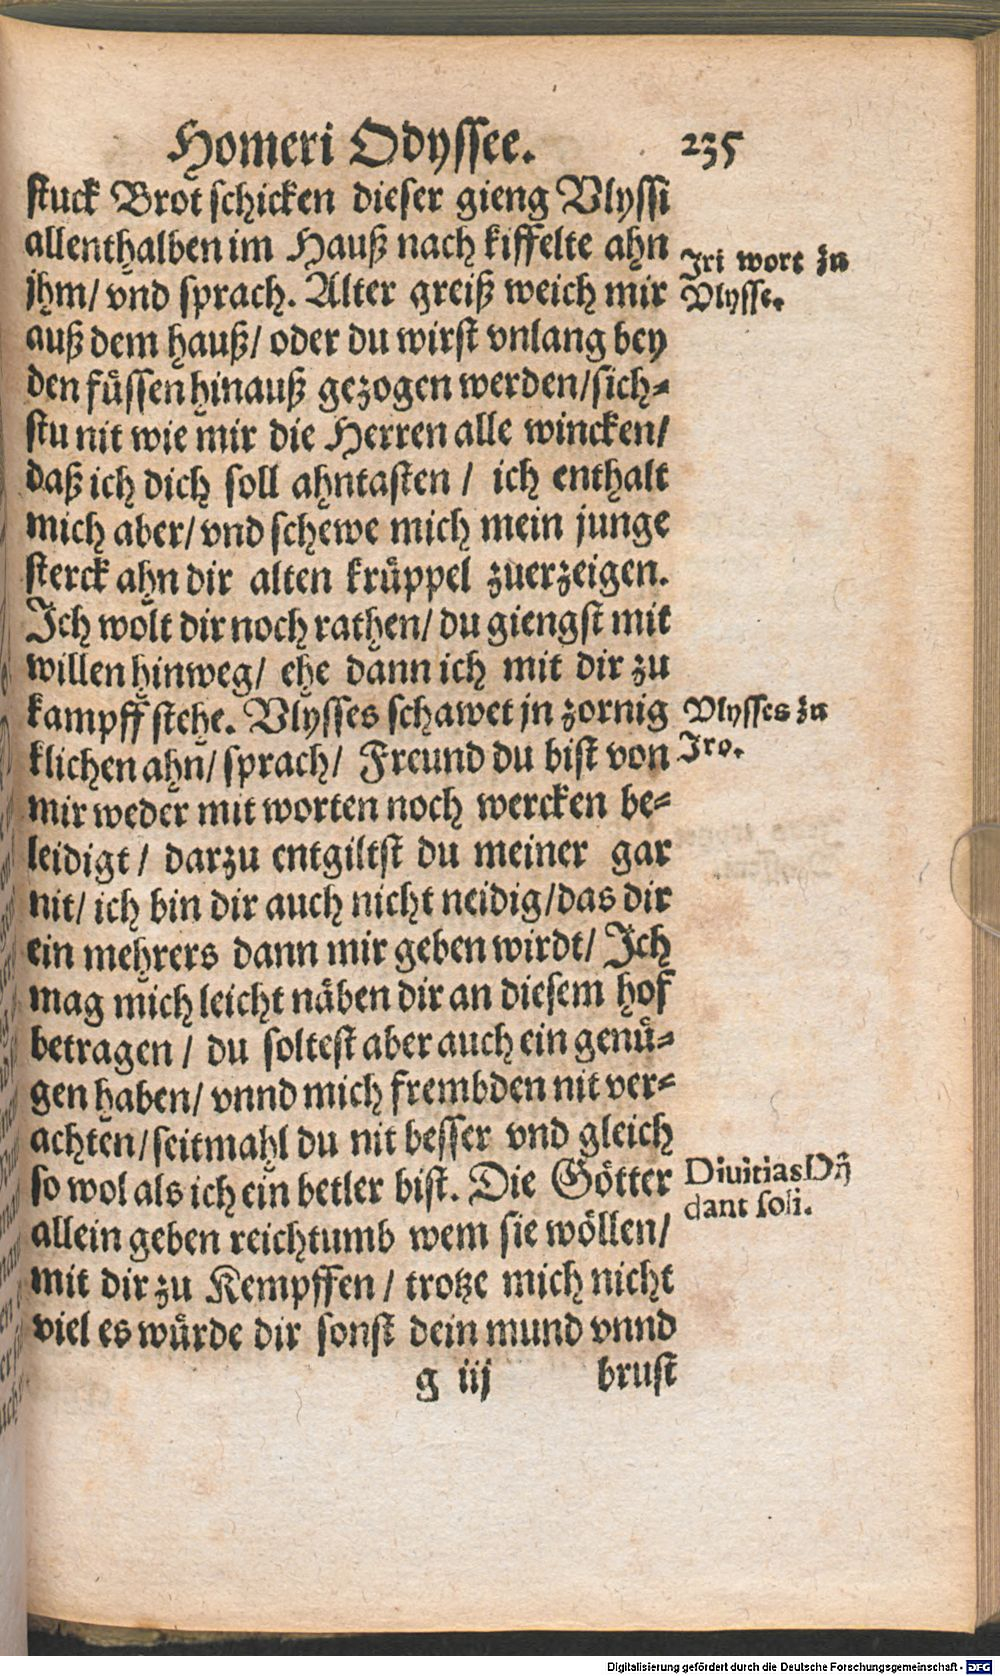 Homeri Odyssee. 235
stuck Brot schicken dieser gieng Vlyssi
allenthalben im Hauß nach kiffelte ahn
jhm/ vnd sprach. Alter greiß weich mir
Iri wort zu
Vlysse.
auß dem hauß/ oder du wirst vnlang bey
den füssen hinauß gezogen werden/ sich-
stu nit wie mir die Herren alle wincken/
daß ich dich soll ahntasten / ich enthalt
mich aber/ vnd schewe mich mein junge
sterck ahn dir alten krüppel zuerzeigen.
Ich wolt dir noch rathen/ du giengst mit
willen hinweg/ ehe dann ich mit dir zu
kampff stehe. Vlysses schawet jn zornig
klichen ahn/ sprach/ Freund du bist von
Vlysses zu
Iro.
mir weder mit worten noch wercken be-
leidigt / darzu entgiltst du meiner gar
nit/ ich bin dir auch nicht neidig/ das dir
ein mehrers dann mir geben wirdt/ Ich
mag mich leicht näben dir an diesem hof
betragen / du soltest aber auch ein genü-
gen haben/ vnnd mich frembden nit ver-
achten/ seitmahl du nit besser vnd gleich
so wol als ich ein betler bist. Die Götter
Diuitias Dij
dant soli.
allein geben reichtumb wem sie wöllen/
mit dir zu Kempffen / trotze mich nicht
viel es würde dir sonst dein mund vnnd
g iij brust
Digitalisierung gefördert durch die Deutsche Forschungsgemeinschaft - DFG